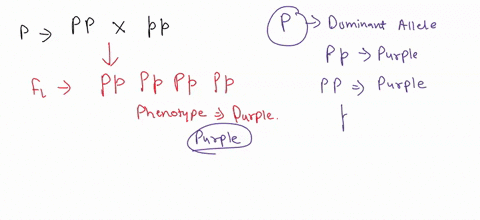 P → PP × pp
F1 → Pp Pp Pp Pp
Phenotype ⇒ Purple.
Purple
P → Dominant Allele
Pp → Purple
PP ⇒ Purple